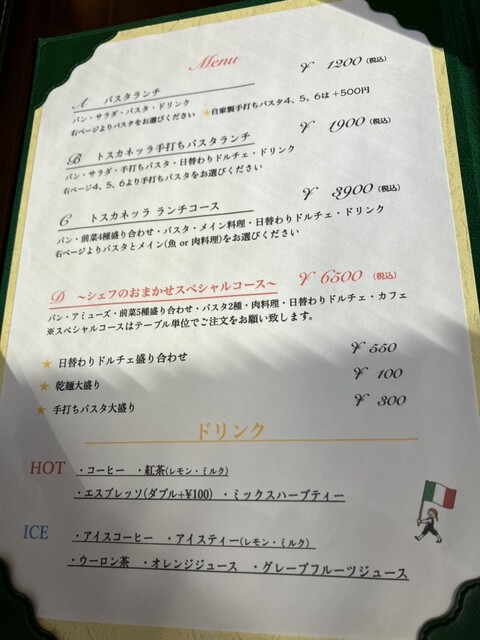 Menu
A パスタランチ ¥ 1200 (税込)
パン・サラダ・パスタ・ドリンク
右ページよりパスタをお選びください ★自家製手打ちパスタ4、5、6は＋500円
B トスカネッラ手打ちパスタランチ ¥ 1900 (税込)
パン・サラダ・手打ちパスタ・日替わりドルチェ・ドリンク
右ページ4、5、6より手打ちパスタをお選びください
C トスカネッラ ランチコース ¥ 3900 (税込)
パン・前菜4種盛り合わせ・パスタ・メイン料理・日替わりドルチェ・ドリンク
右ページよりパスタとメイン(魚 or 肉料理)をお選びください
D ～シェフのおまかせスペシャルコース～ ¥ 6500 (税込)
パン・アミューズ・前菜5種盛り合わせ・パスタ2種・肉料理・日替わりドルチェ・カフェ
※スペシャルコースはテーブル単位でご注文をお願い致します。
★ 日替わりドルチェ盛り合わせ ¥ 550
★ 乾麺大盛り ¥ 100
★ 手打ちパスタ大盛り ¥ 300
ドリンク
HOT ・コーヒー ・紅茶(レモン・ミルク)
・エスプレッソ(ダブル+¥100) ・ミックスハーブティー
ICE ・アイスコーヒー ・アイスティー(レモン・ミルク)
・ウーロン茶 ・オレンジジュース ・グレープフルーツジュース